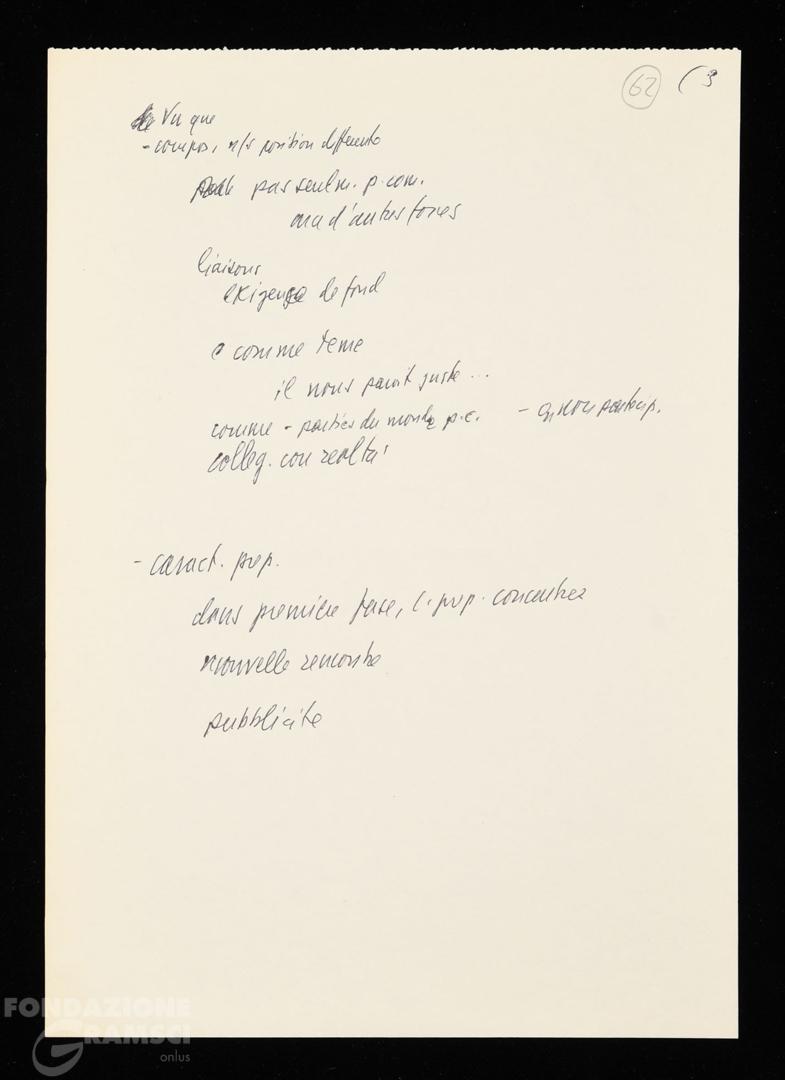 62 (3
Vu que
- compos, n/s position differente
pas seulm. p. com.
ma d'autres forces
liaisons
exigence de fond
e comme teme
il nous parait juste ...
comme - parties du monde p.c. - non partecip.
colleg. con realtà
- caract. prep.
dans première fase, c. prep. concentrer
nouvelle rencontre
pubblicite
FONDAZIONE
GRAMSCI
onlus